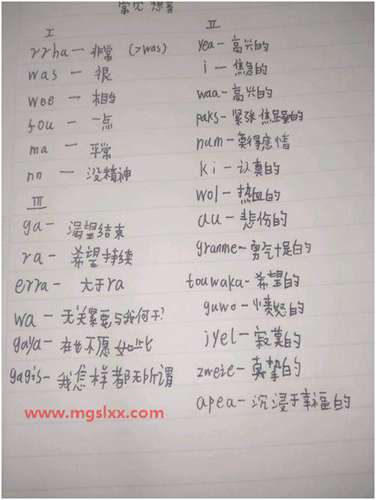 常见想音
I
rrha — 非常 (>was)
was — 很
wee — 相当
fou — 一点
ma — 平常
nn — 没精神
III
ga — 渴望结束
ra — 希望持续
erra — 大于ra
wa — 无关紧要与我何干?
gaya — 再也不愿如此
gagis — 我怎样都无所谓
II
yea — 高兴的
i — 焦急的
waa — 高兴的
paks — 紧张焦虑的
num — 莫得感情
ki — 认真的
wol — 热血的
au — 悲伤的
granme — 勇气十足的
touwaka — 希望的
guwo — 愤怒的
jyel — 寂寞的
zweie — 真挚的
apea — 沉浸于幸福的
www.mgslxx.com